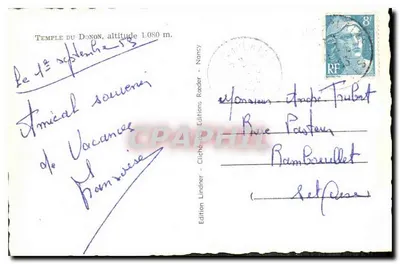 TEMPLE DU DONON, altitude 1.080 m.
Le 1er septembre 53
Amical souvenir
de Vacances
Françoise
Edition Lindner - Cliché Editions Rœder - Nancy
8F
RF
Monsieur André
Rue Pasteur
Rambouillet
Set Oise
Cartes